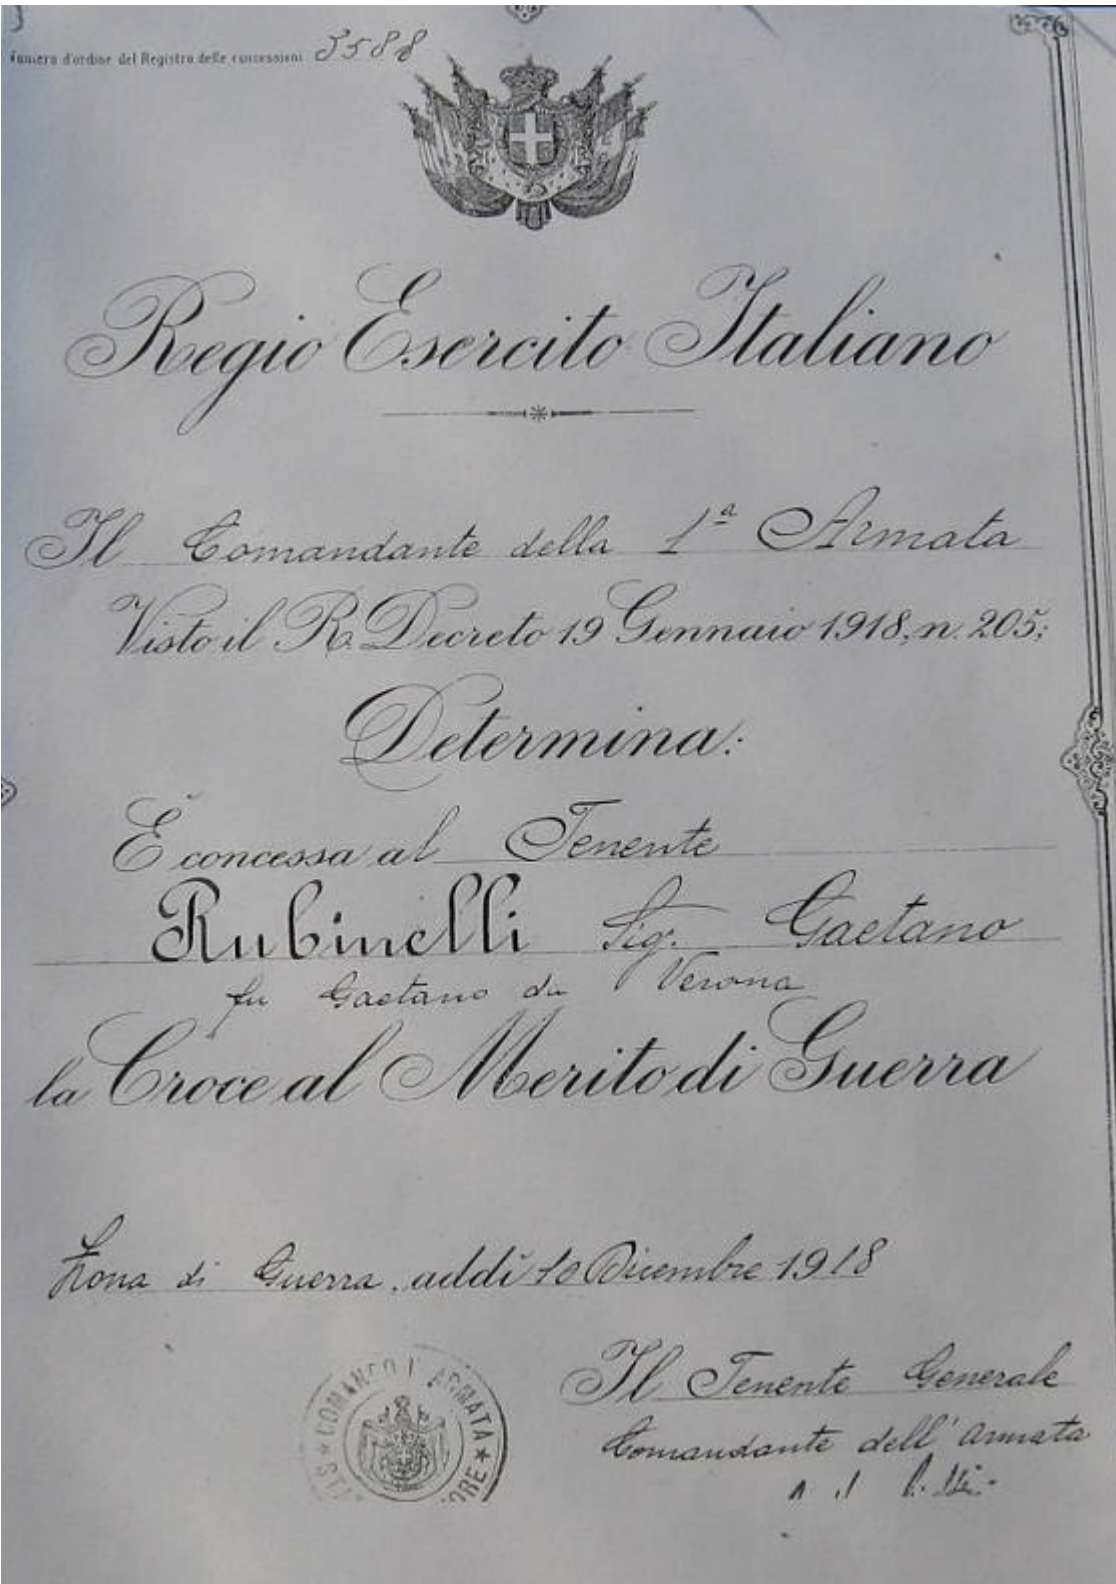 Numero d'ordine del Registro delle concessioni 3588
Regio Esercito Italiano
Il Comandante della 1ª Armata
Visto il R. Decreto 19 Gennaio 1918, n. 205;
Determina:
È concessa al Tenente
Rubinelli Sig. Gaetano
fu Gaetano da Verona
la Croce al Merito di Guerra
Zona di Guerra, addì 10 Dicembre 1918
COMANDO Iª ARMATA
Il Tenente Generale
Comandante dell'Armata